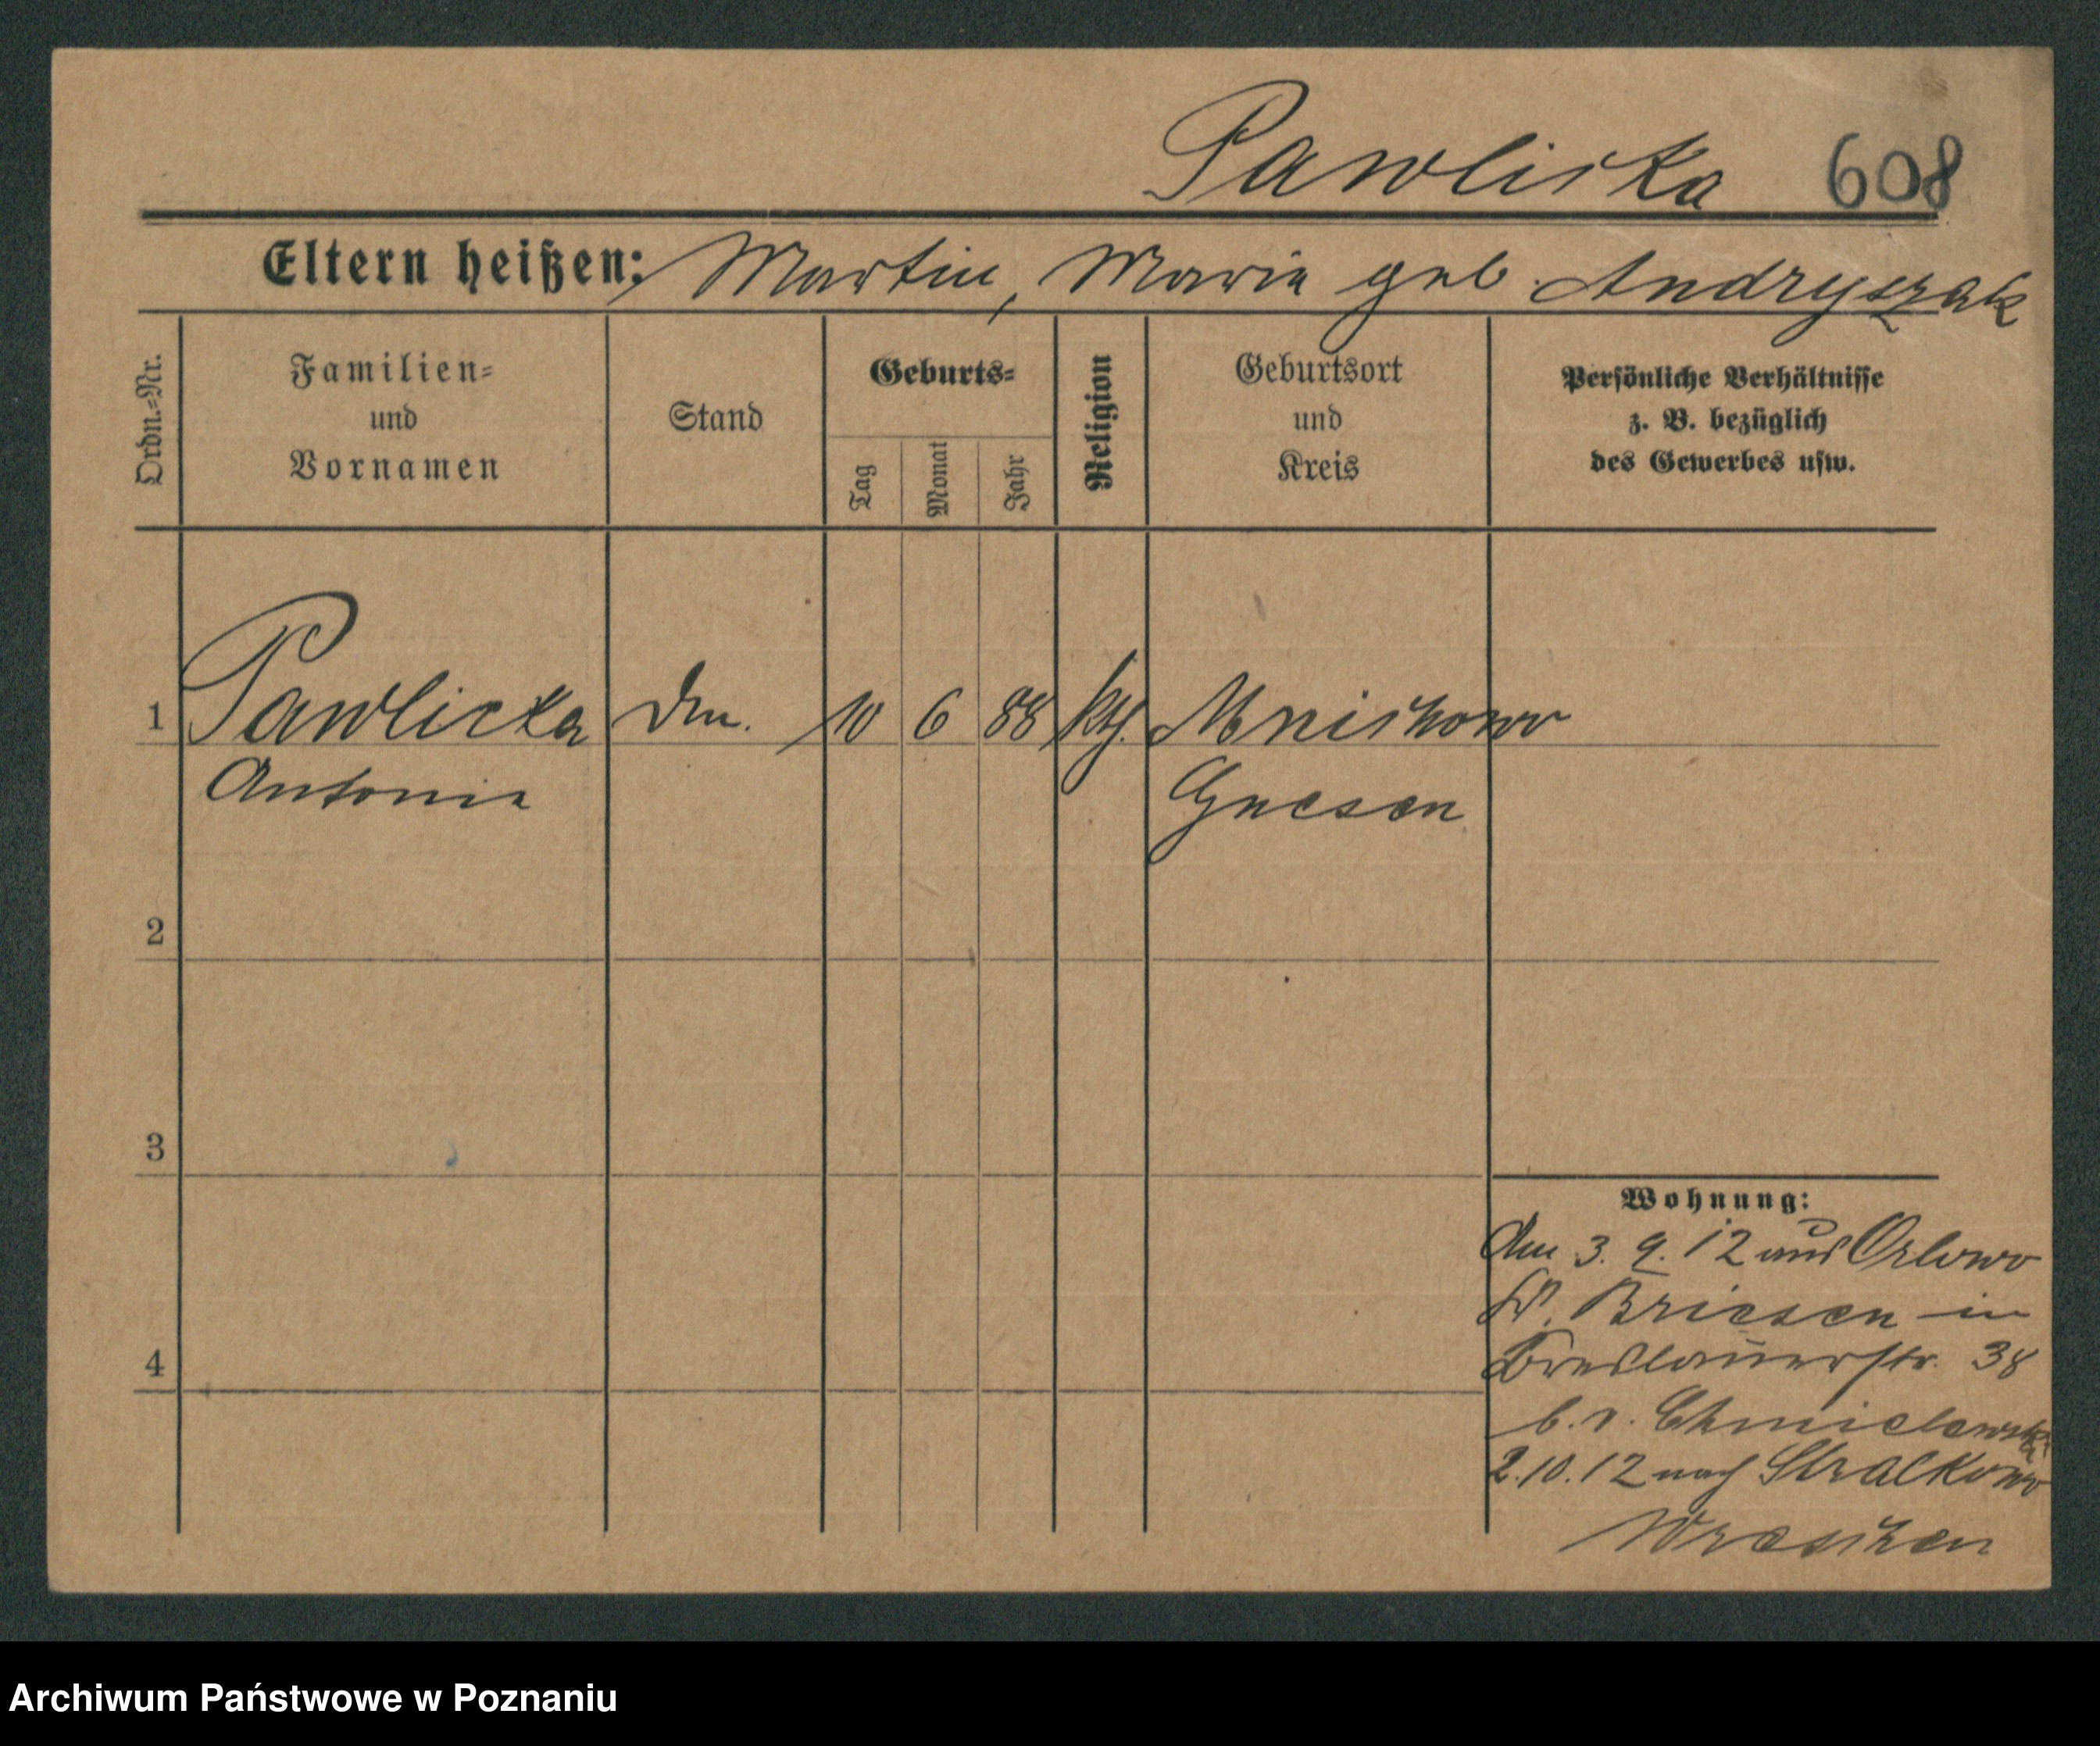 Pawlicka 608
Eltern heißen: Martin, Maria geb. Andryszak
Ordn.=Nr.
Familien=
und
Vornamen
Stand
Geburts=
Tag
Monat
Jahr
Religion
Geburtsort
und
Kreis
Persönliche Verhältnisse
z. B. bezüglich
des Gewerbes usw.
1 Pawlicka 10 6 88 kth. Mnichowo
Antonia Gnesen
2
3
4
Wohnung:
Am 3. 9. 12 aus Orlowo
Briesen in
Breslauerstr. 38
b. v. Chmielewski
2.10.12 nach Stralkowo
Wreschen
Archiwum Państwowe w Poznaniu